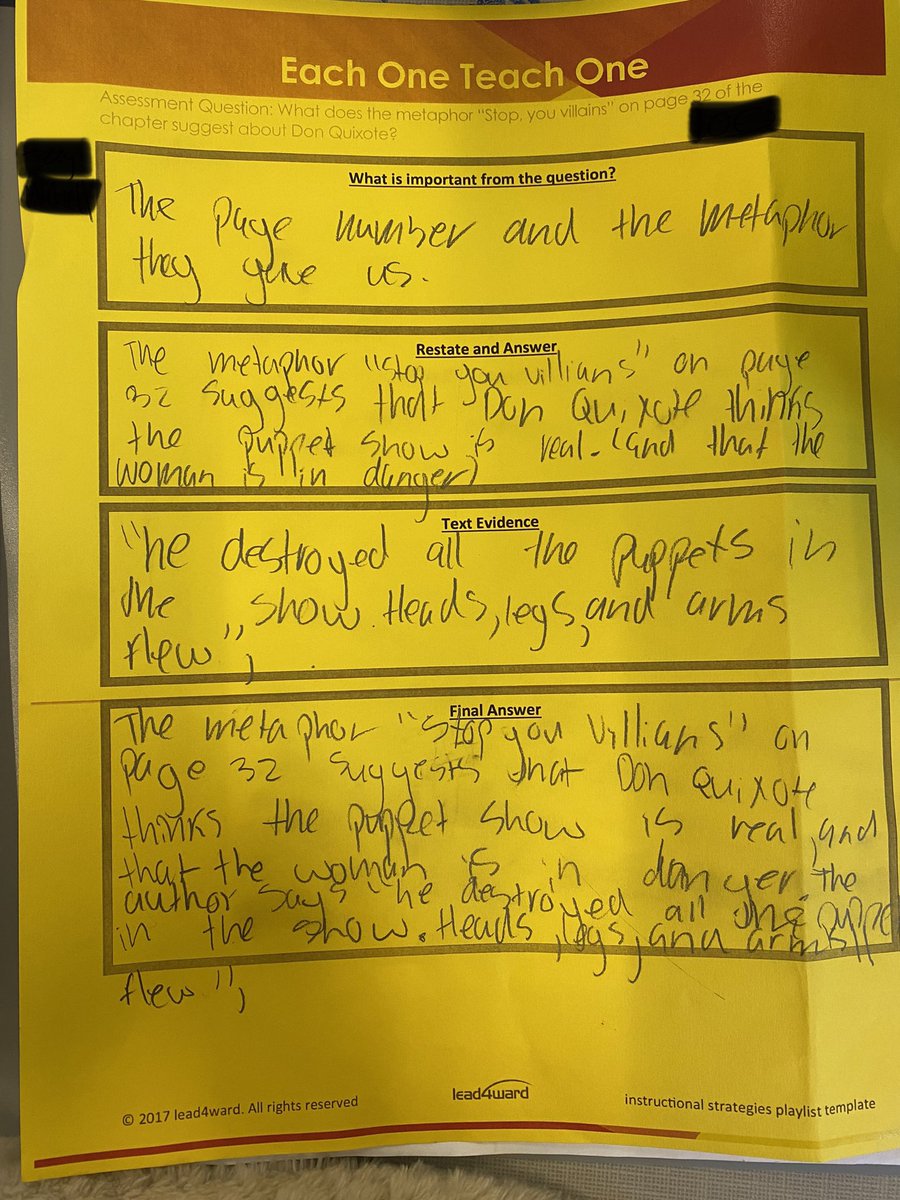 Each One Teach One
Assessment Question: What does the metaphor "Stop, you villains" on page 32 of the
chapter suggest about Don Quixote?
What is important from the question?
The page number and the metaphor
they gave us.
Restate and Answer
The metaphor "stop you villians" on page
32 suggests that Don Quixote thinks
the puppet show is real. (and that the
woman is in danger)
Text Evidence
"he destroyed all the puppets in
the show. Heads, legs, and arms
flew",
Final Answer
The metaphor "stop you villians" on
page 32 suggests that Don Quixote
thinks the puppet show is real, and
that the woman is in danger, the
author says "he destroyed all the puppe
in the show. Heads, legs, and arms
flew",
© 2017 lead4ward. All rights reserved
lead4ward
instructional strategies playlist template